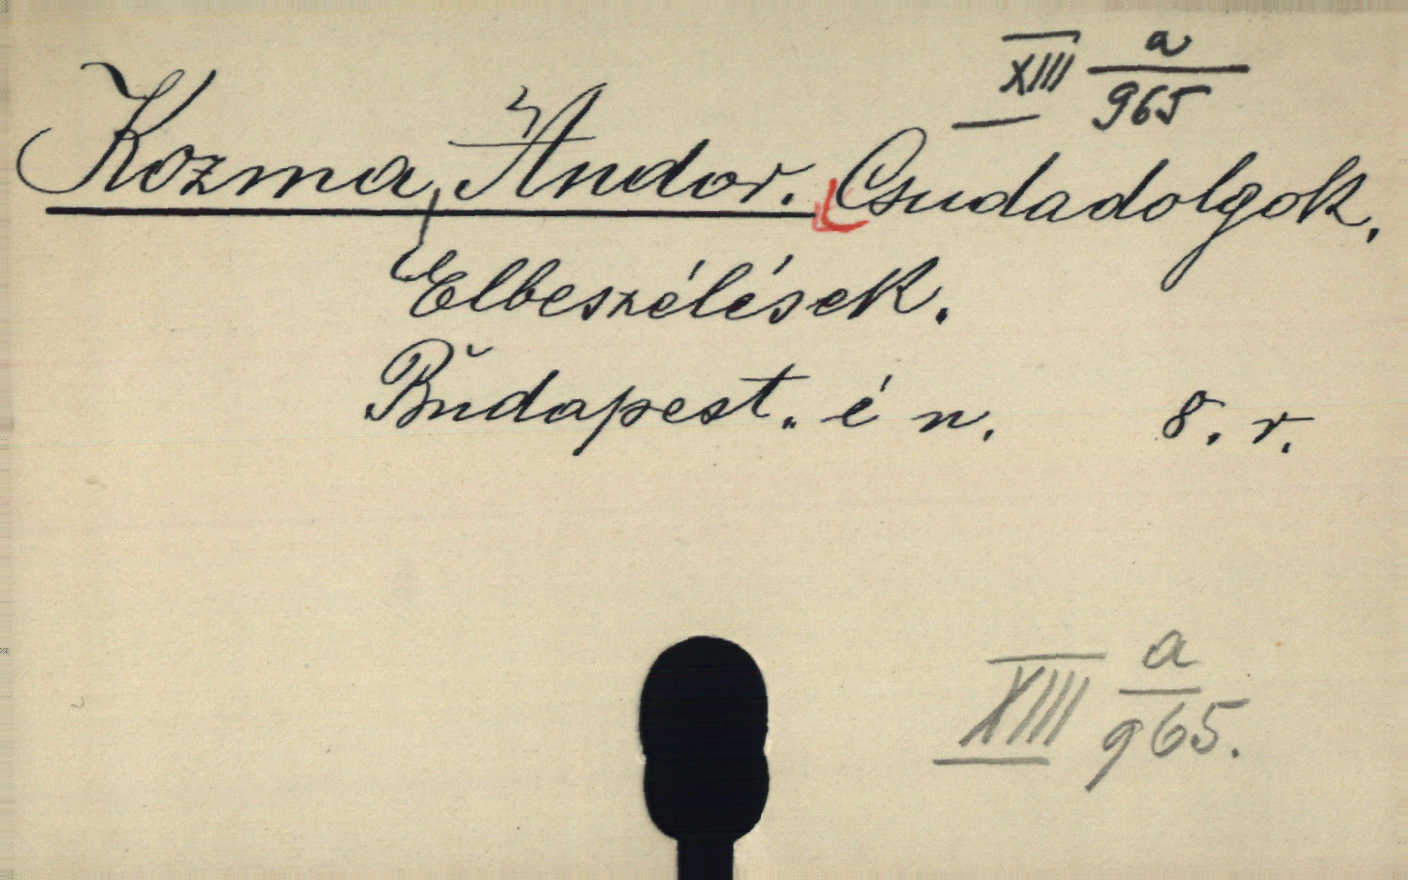 XIII a/965
Kozma, Andor. Csudadolgok.
Elbeszélések.
Budapest. é n. 8. r.
XIII a/965.